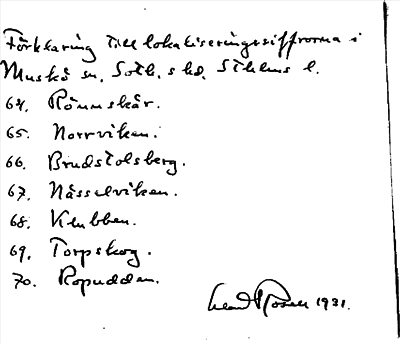 Förklaring till lokaliseringssiffrorna i
Muskö sn, Soth. s hd, Sthlms l.
64. Rönnskär.
65. Norrviken.
66. Brudstolsberg.
67. Nässelviken.
68. Klubben.
69. Torpskog.
70. Ropudden.
1931.